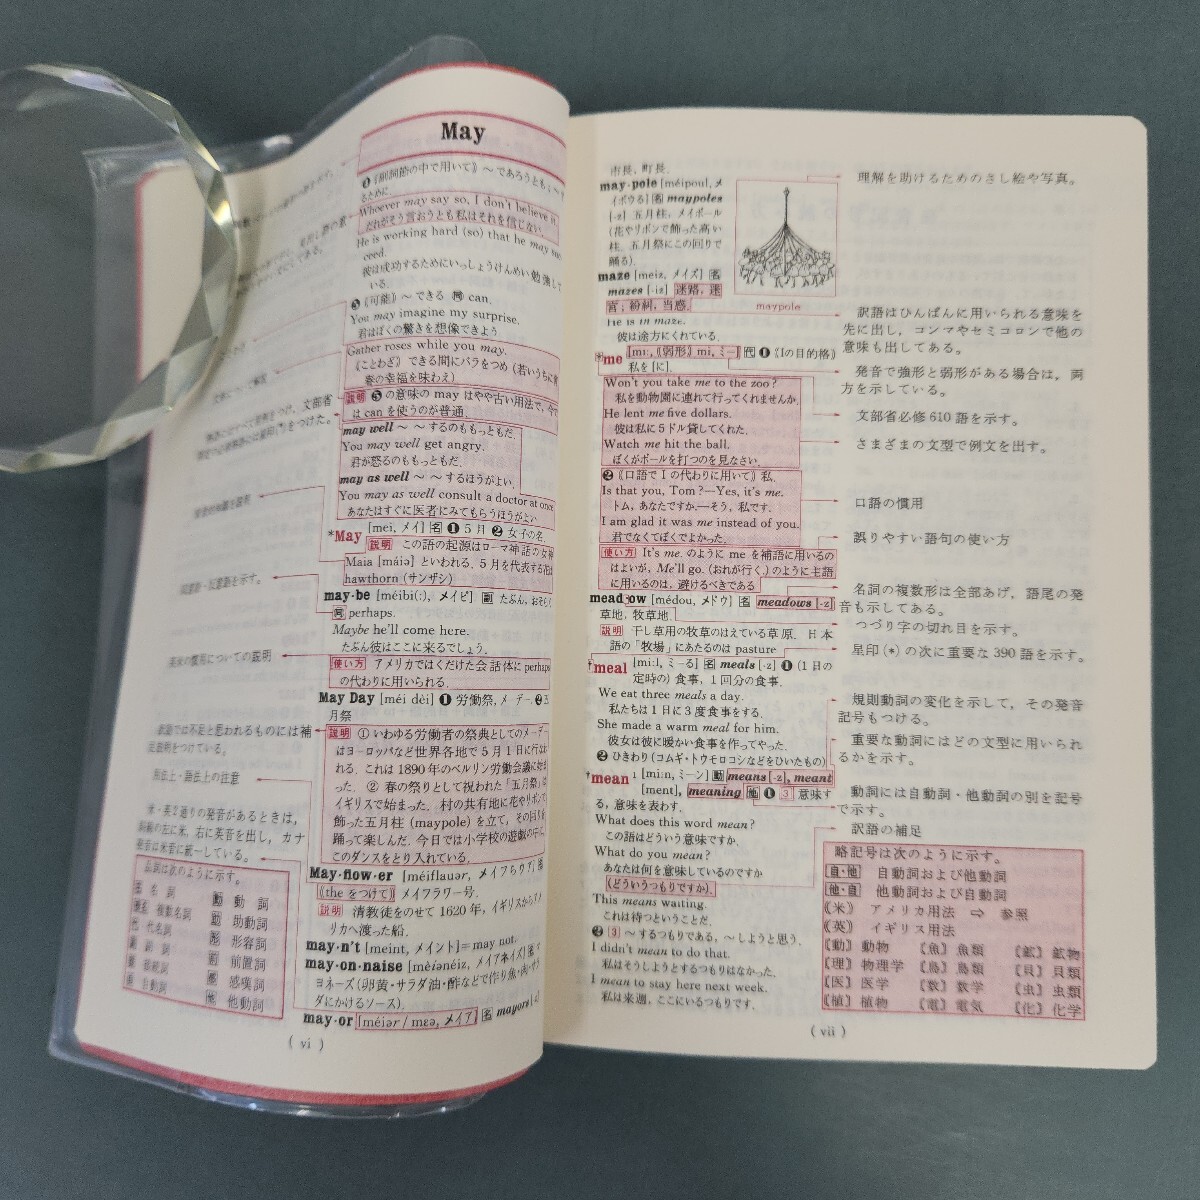 May
《副詞節の中で用いて》 ~であろうとも; ~
るために
Whoever may say so, I don't believe it.
だれがそう言おうとも私はそれを信じない.
He is working hard (so) that he may
ceed.
彼は成功するためにいっしょうけんめい勉強して
いる.
❺ 《可能》 ~できる 同 can.
You may imagine my surprise.
君はぼくの驚きを想像できよう.
Gather roses while you may.
《ことわざ》 できる間にバラをつめ (若いうちに
春の幸福を味わえ)
説明 ❺の意味の may はやや古い用法で, 今で
は can を使うのが普通.
may well ~ ~するのももっともだ.
You may well get angry.
君が怒るのももっともだ.
may as well ~ ~するほうがよい.
You may as well consult a doctor at once.
あなたはすぐに医者にみてもらうほうがよい.
*May [mei, メイ] 名 ❶ 5月 ❷ 女子の名.
説明 この語の起源はローマ神話の女神
Maia [máiə] といわれる. 5月を代表する花は
hawthorn (サンザシ)
may·be [méibi(ː), メイビ] 副 たぶん, おそらく
同 perhaps.
Maybe he'll come here.
たぶん彼はここに来るでしょう.
使い方 アメリカではくだけた会話体に perhaps
の代わりに用いられる.
May Day [méi dèi] ❶ 労働祭, メーデー. ❷ 五
月祭
説明 ① いわゆる労働者の祭典としてのメーデー
はヨーロッパなど世界各地で5月1日に行
れる. これは1890年のベルリン労働会議に始ま
った. ② 春の祭りとして祝われた「五月祭」は
イギリスで始まった. 村の共有地に花やリボンで
飾った五月柱 (maypole) を立て, その回りを
踊って楽しんだ. 今日では小学校の遊戯の中に
このダンスをとり入れている.
May·flow·er [méiflauər, メイフらウア] 名
《the をつけて》 メイフラワー号.
説明 清教徒をのせて1620年, イギリスからアメ
リカへ渡った船.
may·n't [meint, メイント]=may not.
may·on·naise [mèiənéiz, メイアネイズ] 名 マ
ヨネーズ (卵黄・サラダ油・酢などで作り魚・肉・サラ
ダにかけるソース).
may·or [méiər / mɛə, メイア] 名 mayors [-z]
文部省
発音の特徴を説明
同意語・反意語を示す。
英米の慣用についての説明
訳語では不足と思われるものには補
足説明をつけている。
用法上・語法上の注意
米・英2通りの発音があるときは,
左に米, 右に英音を出し, カナ
発音は米音に統一している。
品詞は次のように示す。
名 名詞
動 動詞
複数名詞
助 助動詞
代 代名詞
形 形容詞
副 副詞
前 前置詞
接 接続詞
感 感嘆詞
自 自動詞
他 他動詞
( vi )
市長, 町長.
may·pole [méipoul, メ
イポウる] 名 maypoles
[-z] 五月柱, メイポール
(花やリボンで飾った高い
柱. 五月祭にこの回りで
踊る).
maypole
maze [meiz, メイズ] 名
mazes [-iz] 迷路, 迷
宮; 紛糾, 当惑.
He is in maze.
彼は途方にくれている.
*me [miː, 《弱形》 mi, ミー] 代 ❶ 《Iの目的格》
私を [に].
Won't you take me to the zoo?
私を動物園に連れて行ってくれませんか.
He lent me five dollars.
彼は私に5ドル貸してくれた.
Watch me hit the ball.
ぼくがボールを打つのを見なさい.
❷ 《口語で I の代わりに用いて》 私.
Is that you, Tom?—Yes, it's me.
トム, あなたですか.—そう, 私です.
I am glad it was me instead of you.
君でなくてぼくでよかった.
使い方 It's me. のように me を補語に用いるの
はよいが, Me'll go. (おれが行く.) のように主語
に用いるのは, 避けるべきである
mead·ow [médou, メドウ] 名 meadows [-z]
草地, 牧草地.
説明 干し草用の牧草のはえている草原. 日本
語の「牧場」にあたるのは pasture
†meal [miːl, ミーる] 名 meals [-z] ❶ (1日の
定時の) 食事, 1回分の食事.
We eat three meals a day.
私たちは1日に3度食事をする.
She made a warm meal for him.
彼女は彼に暖かい食事を作ってやった.
❷ ひきわり (コムギ・トウモロコシなどをひいたもの)
†mean¹ [miːn, ミーン] 動 means [-z], meant
[ment], meaning 他 ❶ 3 意味す
る, 意味を表わす.
What does this word mean?
この語はどういう意味ですか.
What do you mean?
あなたは何を意味しているのですか
(どういうつもりですか).
This means waiting.
これは待つということだ.
❷ 3 ~するつもりである, ~しようと思う.
I didn't mean to do that.
私はそうしようとするつもりはなかった.
I mean to stay here next week.
私は来週, ここにいるつもりです.
理解を助けるためのさし絵や写真。
訳語はひんぱんに用いられる意味を
先に出し, コンマやセミコロンで他の
意味も出してある。
発音で強形と弱形がある場合は, 両
方を示している。
文部省必修610語を示す。
さまざまの文型で例文を出す。
口語の慣用
誤りやすい語句の使い方
名詞の複数形は全部あげ, 語尾の発
音も示してある。
つづり字の切れ目を示す。
星印 (*) の次に重要な390語を示す。
規則動詞の変化を示して, その発音
記号もつける。
重要な動詞にはどの文型に用いられ
るかを示す。
動詞には自動詞・他動詞の別を記号
で示す。
訳語の補足
略記号は次のように示す。
自·他 自動詞および他動詞
他·自 他動詞および自動詞
《米》 アメリカ用法 ⇨ 参照
《英》 イギリス用法
〖動〗 動物 〖魚〗 魚類 〖鉱〗 鉱物
〖理〗 物理学 〖鳥〗 鳥類 〖貝〗 貝類
〖医〗 医学 〖数〗 数学 〖虫〗 虫類
〖植〗 植物 〖電〗 電気 〖化〗 化学
( vii )